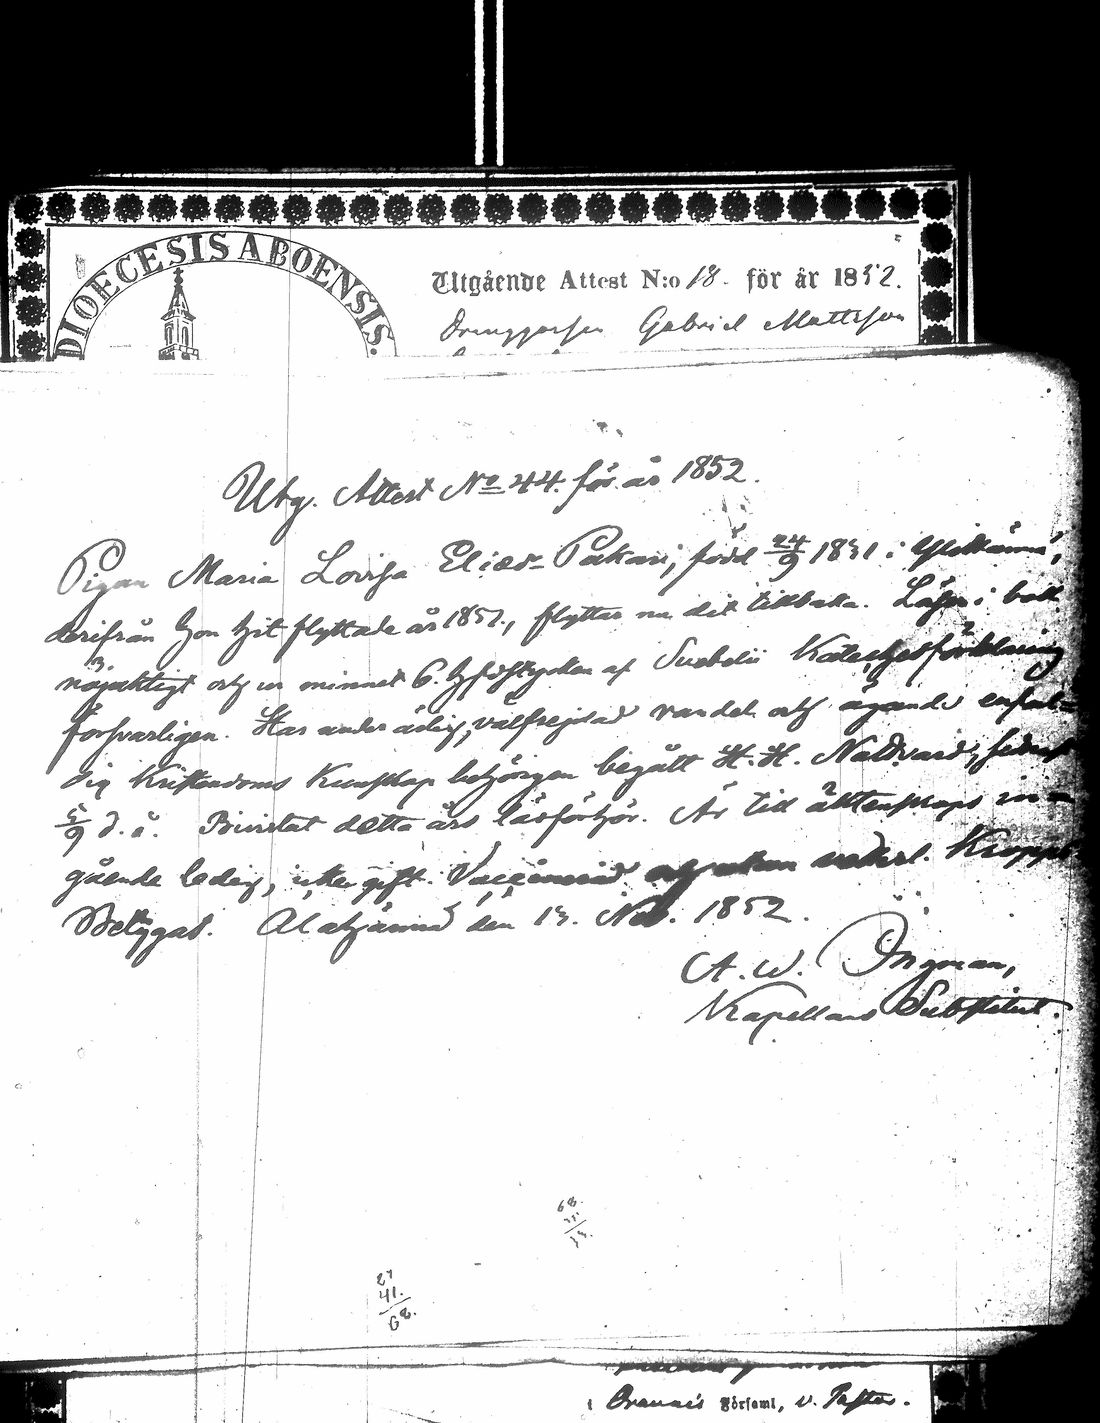 DIOECESIS ABOENSIS.
Utgående Attest N:o 18. för år 1852.
Gabriel Mattsson
Utg. Attest No 44. för år 1852.
Pigan Maria Lovisa Eliasdr Pakari, född 24/9 1831 i Ylikännä,
derifrån hon hit flyttade år 1852, flyttar nu dit tillbaka. Läser i bok
nöjaktigt och ur minnet 6. hufvdstycken af Svebelii Katechesförklaring
försvarligen. Har under ärlig, välfrejdad vandel och ägande enfal-
dig Kristendoms Kunskap behörigen begått H. H. Nattvard, sednast
5/9 d. å. Bivistat detta års läsförhör. Är till äktenskaps in-
gående ledig, icke gift. Vaccinerad och utan vederl. Kropps
Alahärmä den 13. Nov. 1852.
A. W. Ingman,
Kapellans Substitut.
68.
27
41.
68.
Församl, v. Pastor.